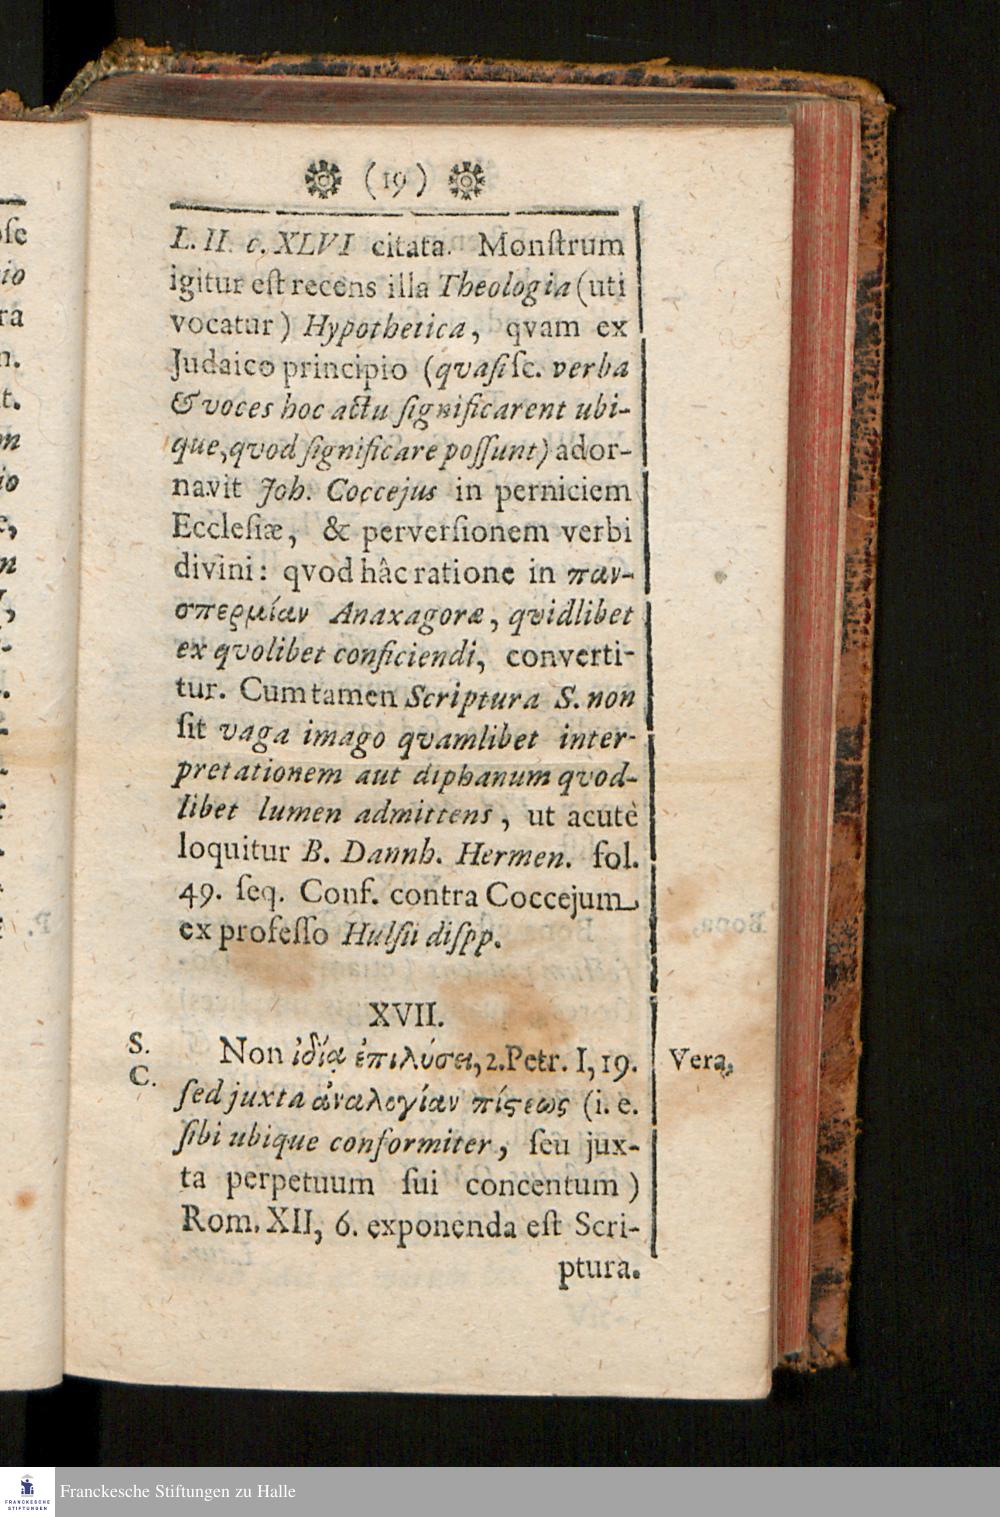 (19)
L. II. c. XLVI citata. Monſtrum
igitur eſt recens illa Theologia (uti
vocatur) Hypothetica, qvam ex
Judaico principio (qvaſi ſc. verba
& voces hoc actu ſignificarent ubi-
que, qvod ſignificare poſſunt) ador-
navit Joh. Coccejus in perniciem
Eccleſiæ, & perverſionem verbi
divini: qvod hâc ratione in παν-
σπερμίαν Anaxagoræ, qvidlibet
ex qvolibet conficiendi, converti-
tur. Cum tamen Scriptura S. non
ſit vaga imago qvamlibet inter-
pretationem aut diphanum qvod-
libet lumen admittens, ut acutè
loquitur B. Dannh. Hermen. fol.
49. ſeq. Conf. contra Coccejum
ex profeſſo Hulſii diſpp.
XVII.
S. Non ἰδίᾳ ἐπιλύσει, 2. Petr. I, 19. Vera,
C. ſed juxta ἀναλογίαν πίϛεως (i. e.
ſibi ubique conformiter, ſeu jux-
ta perpetuum ſui concentum)
Rom. XII, 6. exponenda eſt Scri-
ptura.
FRANCKESCHE
STIFTUNGEN
Franckesche Stiftungen zu Halle